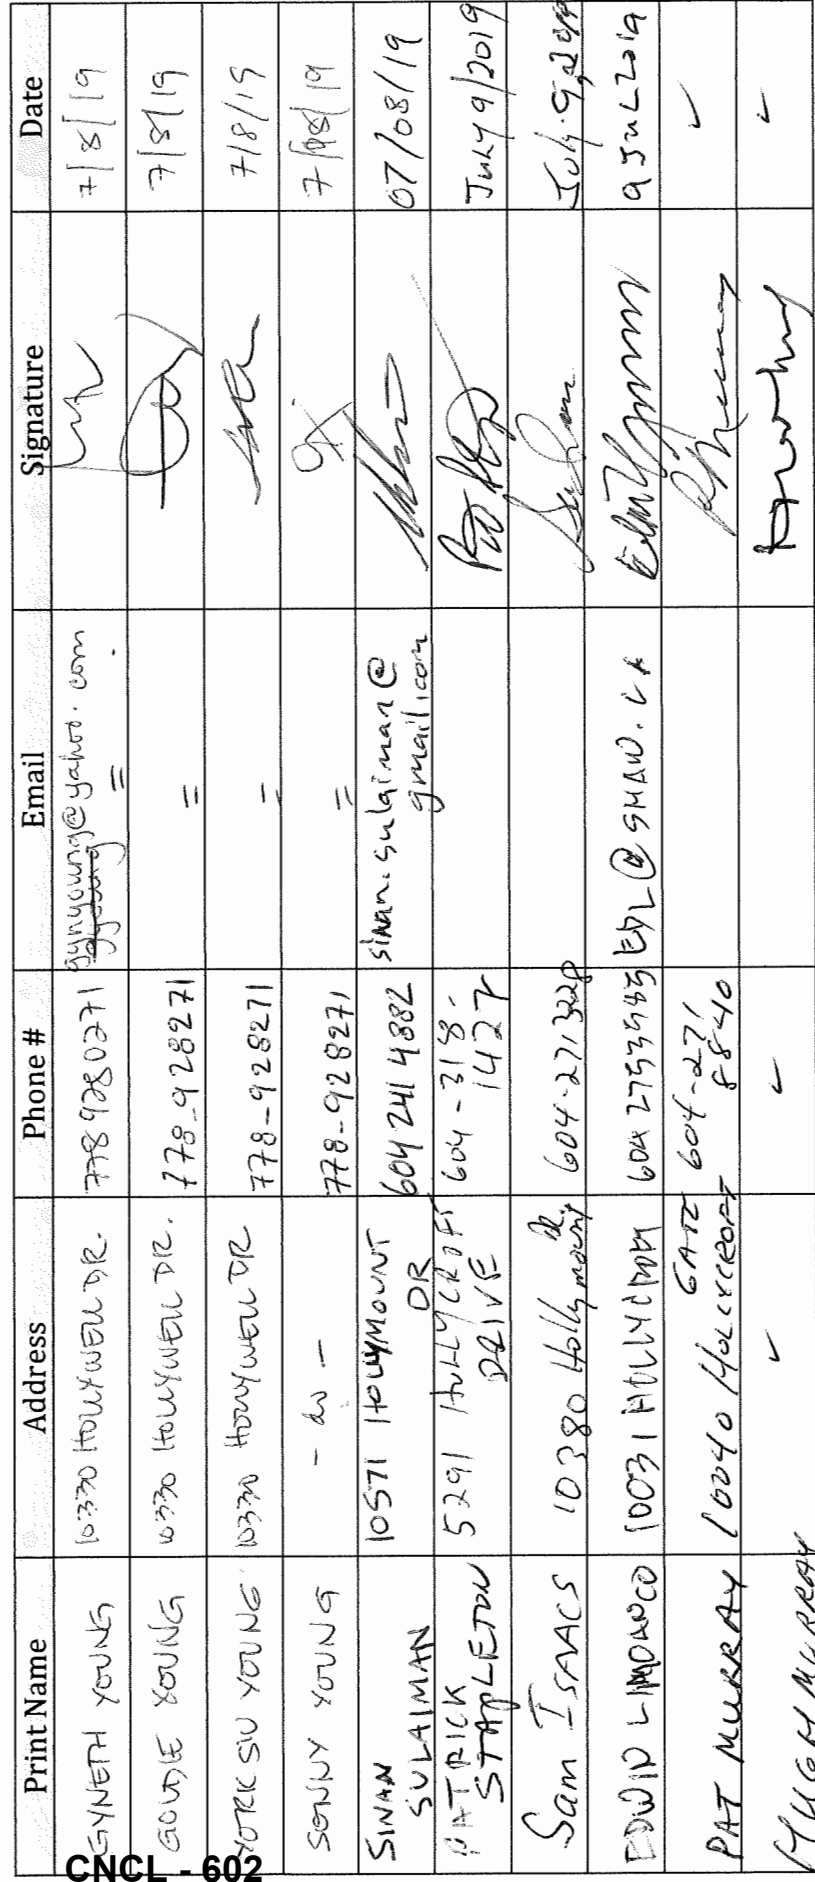 Print Name Address Phone # Email Signature Date
GYNETH YOUNG 10330 HOLLYWELL DR. 778 928 0271 gynyoung@yahoo.com 7/8/19
=
GOLDIE YOUNG 10330 HOLLYWELL DR. 778-928271 = 7/8/19
YORK SIU YOUNG 10330 HOLLYWELL DR 778-928271 = 7/8/19
SONNY YOUNG - do - 778-928271 = 7/08/19
SINAN 10571 HOLLYMOUNT 604 241 4882 sinan.sulaiman@ 07/08/19
SULAIMAN DR gmail.com
PATRICK 5291 HOLLYCROFT 604-318- July 9/2019
STAPLETON DRIVE 1427
Sam ISAACS 10380 Hollymount Dr. 604-271 3228 July.9,2019
EDWIN LIMDANCO 10031 HOLLYCROFT 604 275 3545 EDL@SHAW.CA 9 JUL 2019
PAT MURRAY 10040 HOLLYCROFT GATE 604-271 ✓
8840
HUGH MURRAY ✓ ✓ ✓
CNCL - 602